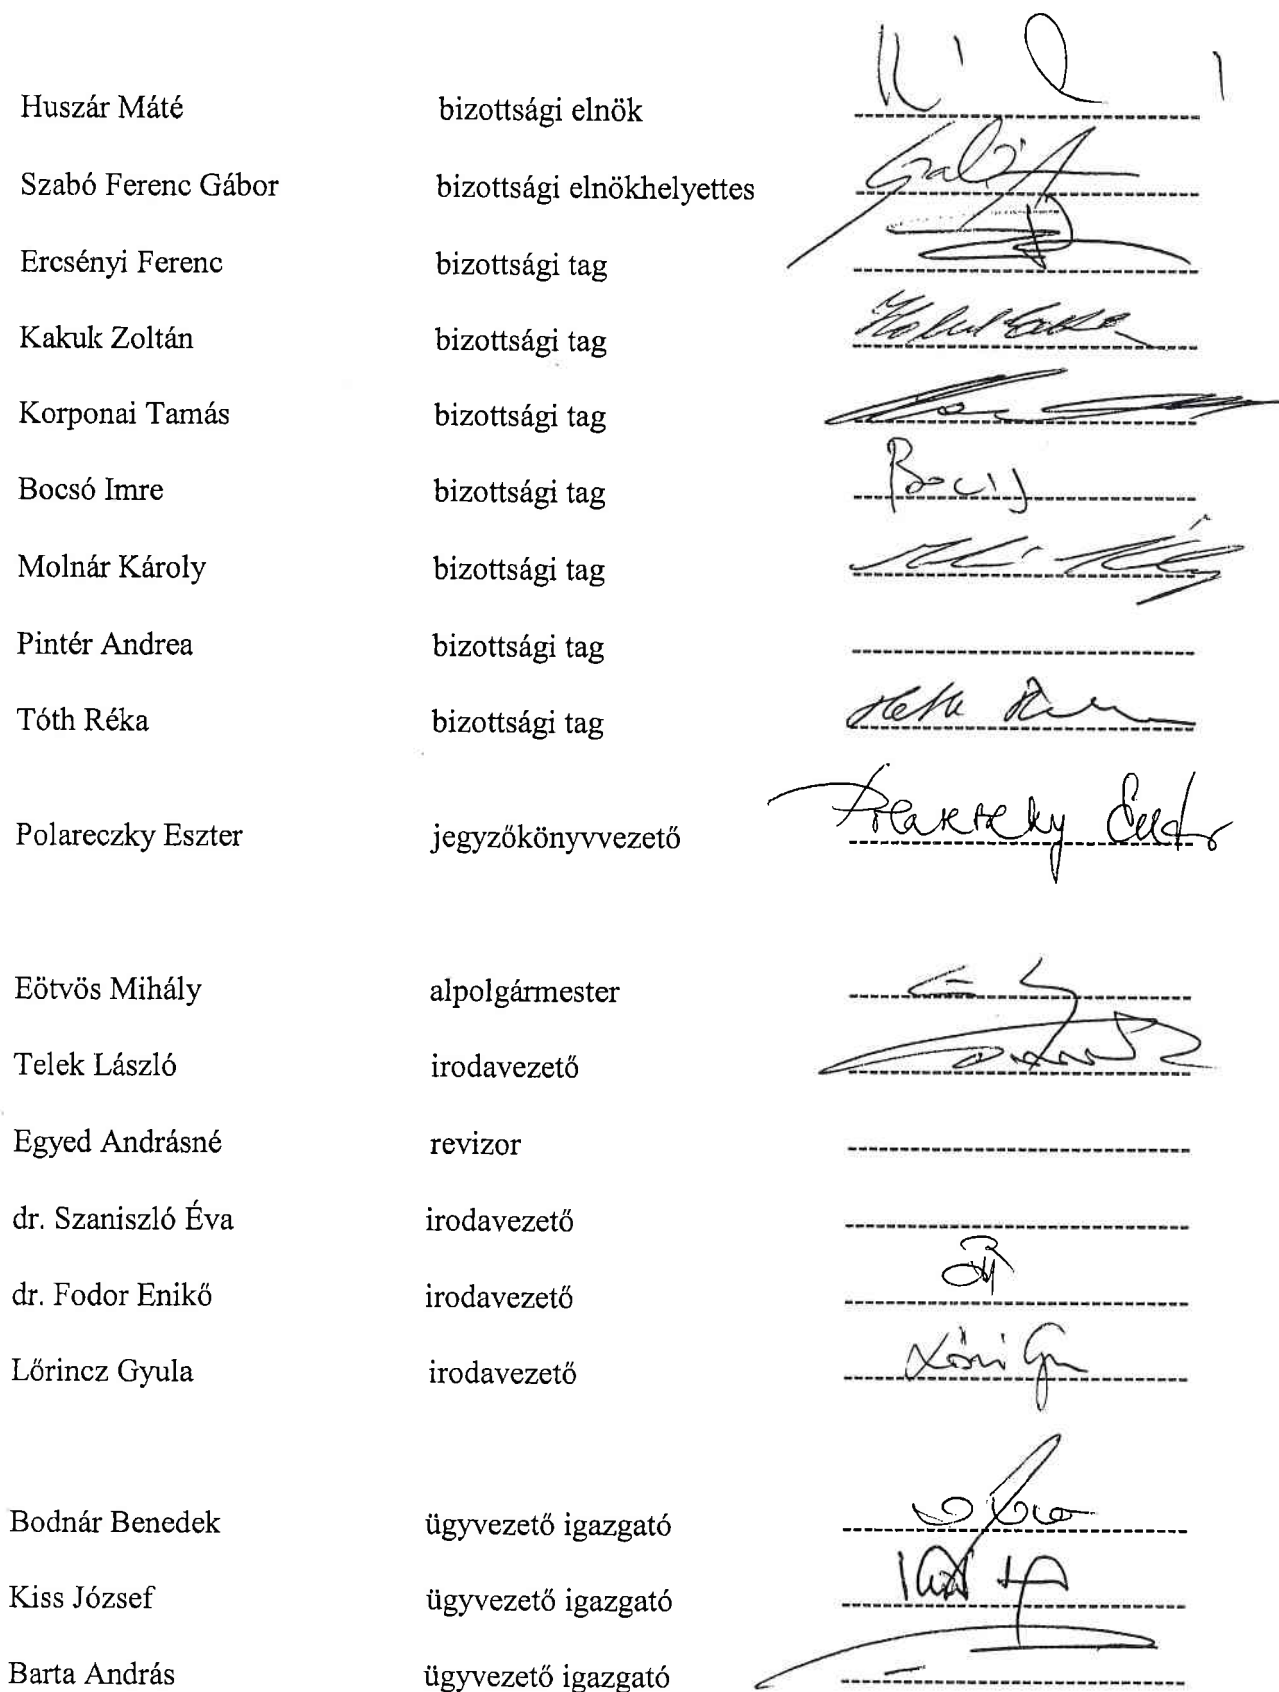 Huszár Máté bizottsági elnök
Szabó Ferenc Gábor bizottsági elnökhelyettes
Ercsényi Ferenc bizottsági tag
Kakuk Zoltán bizottsági tag
Korponai Tamás bizottsági tag
Bocsó Imre bizottsági tag
Molnár Károly bizottsági tag
Pintér Andrea bizottsági tag
Tóth Réka bizottsági tag
Polareczky Eszter jegyzőkönyvvezető
Eötvös Mihály alpolgármester
Telek László irodavezető
Egyed Andrásné revizor
dr. Szaniszló Éva irodavezető
dr. Fodor Enikő irodavezető
Lőrincz Gyula irodavezető
Bodnár Benedek ügyvezető igazgató
Kiss József ügyvezető igazgató
Barta András ügyvezető igazgató